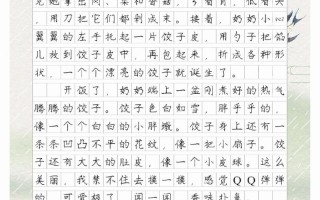 ,用刀把它们都剁成末。接着,奶奶小心
翼翼的左手托起一片饺子皮,用勺子把馅
儿放到饺子皮中,再包起来,折成各种形
状,一个个漂亮的饺子就诞生了。
开饭了,奶奶端上一盆刚煮好的热气
腾腾的饺子。饺子色白如雪,胖乎乎的,
像一个个白白的小胖墩。饺子身上还有一
条条凹凸不平的花纹,像一把小扇子。饺
子还有大大的肚皮,像一个小皮球。这么
美丽,我禁不住去摸一摸,感觉QQ弹弹